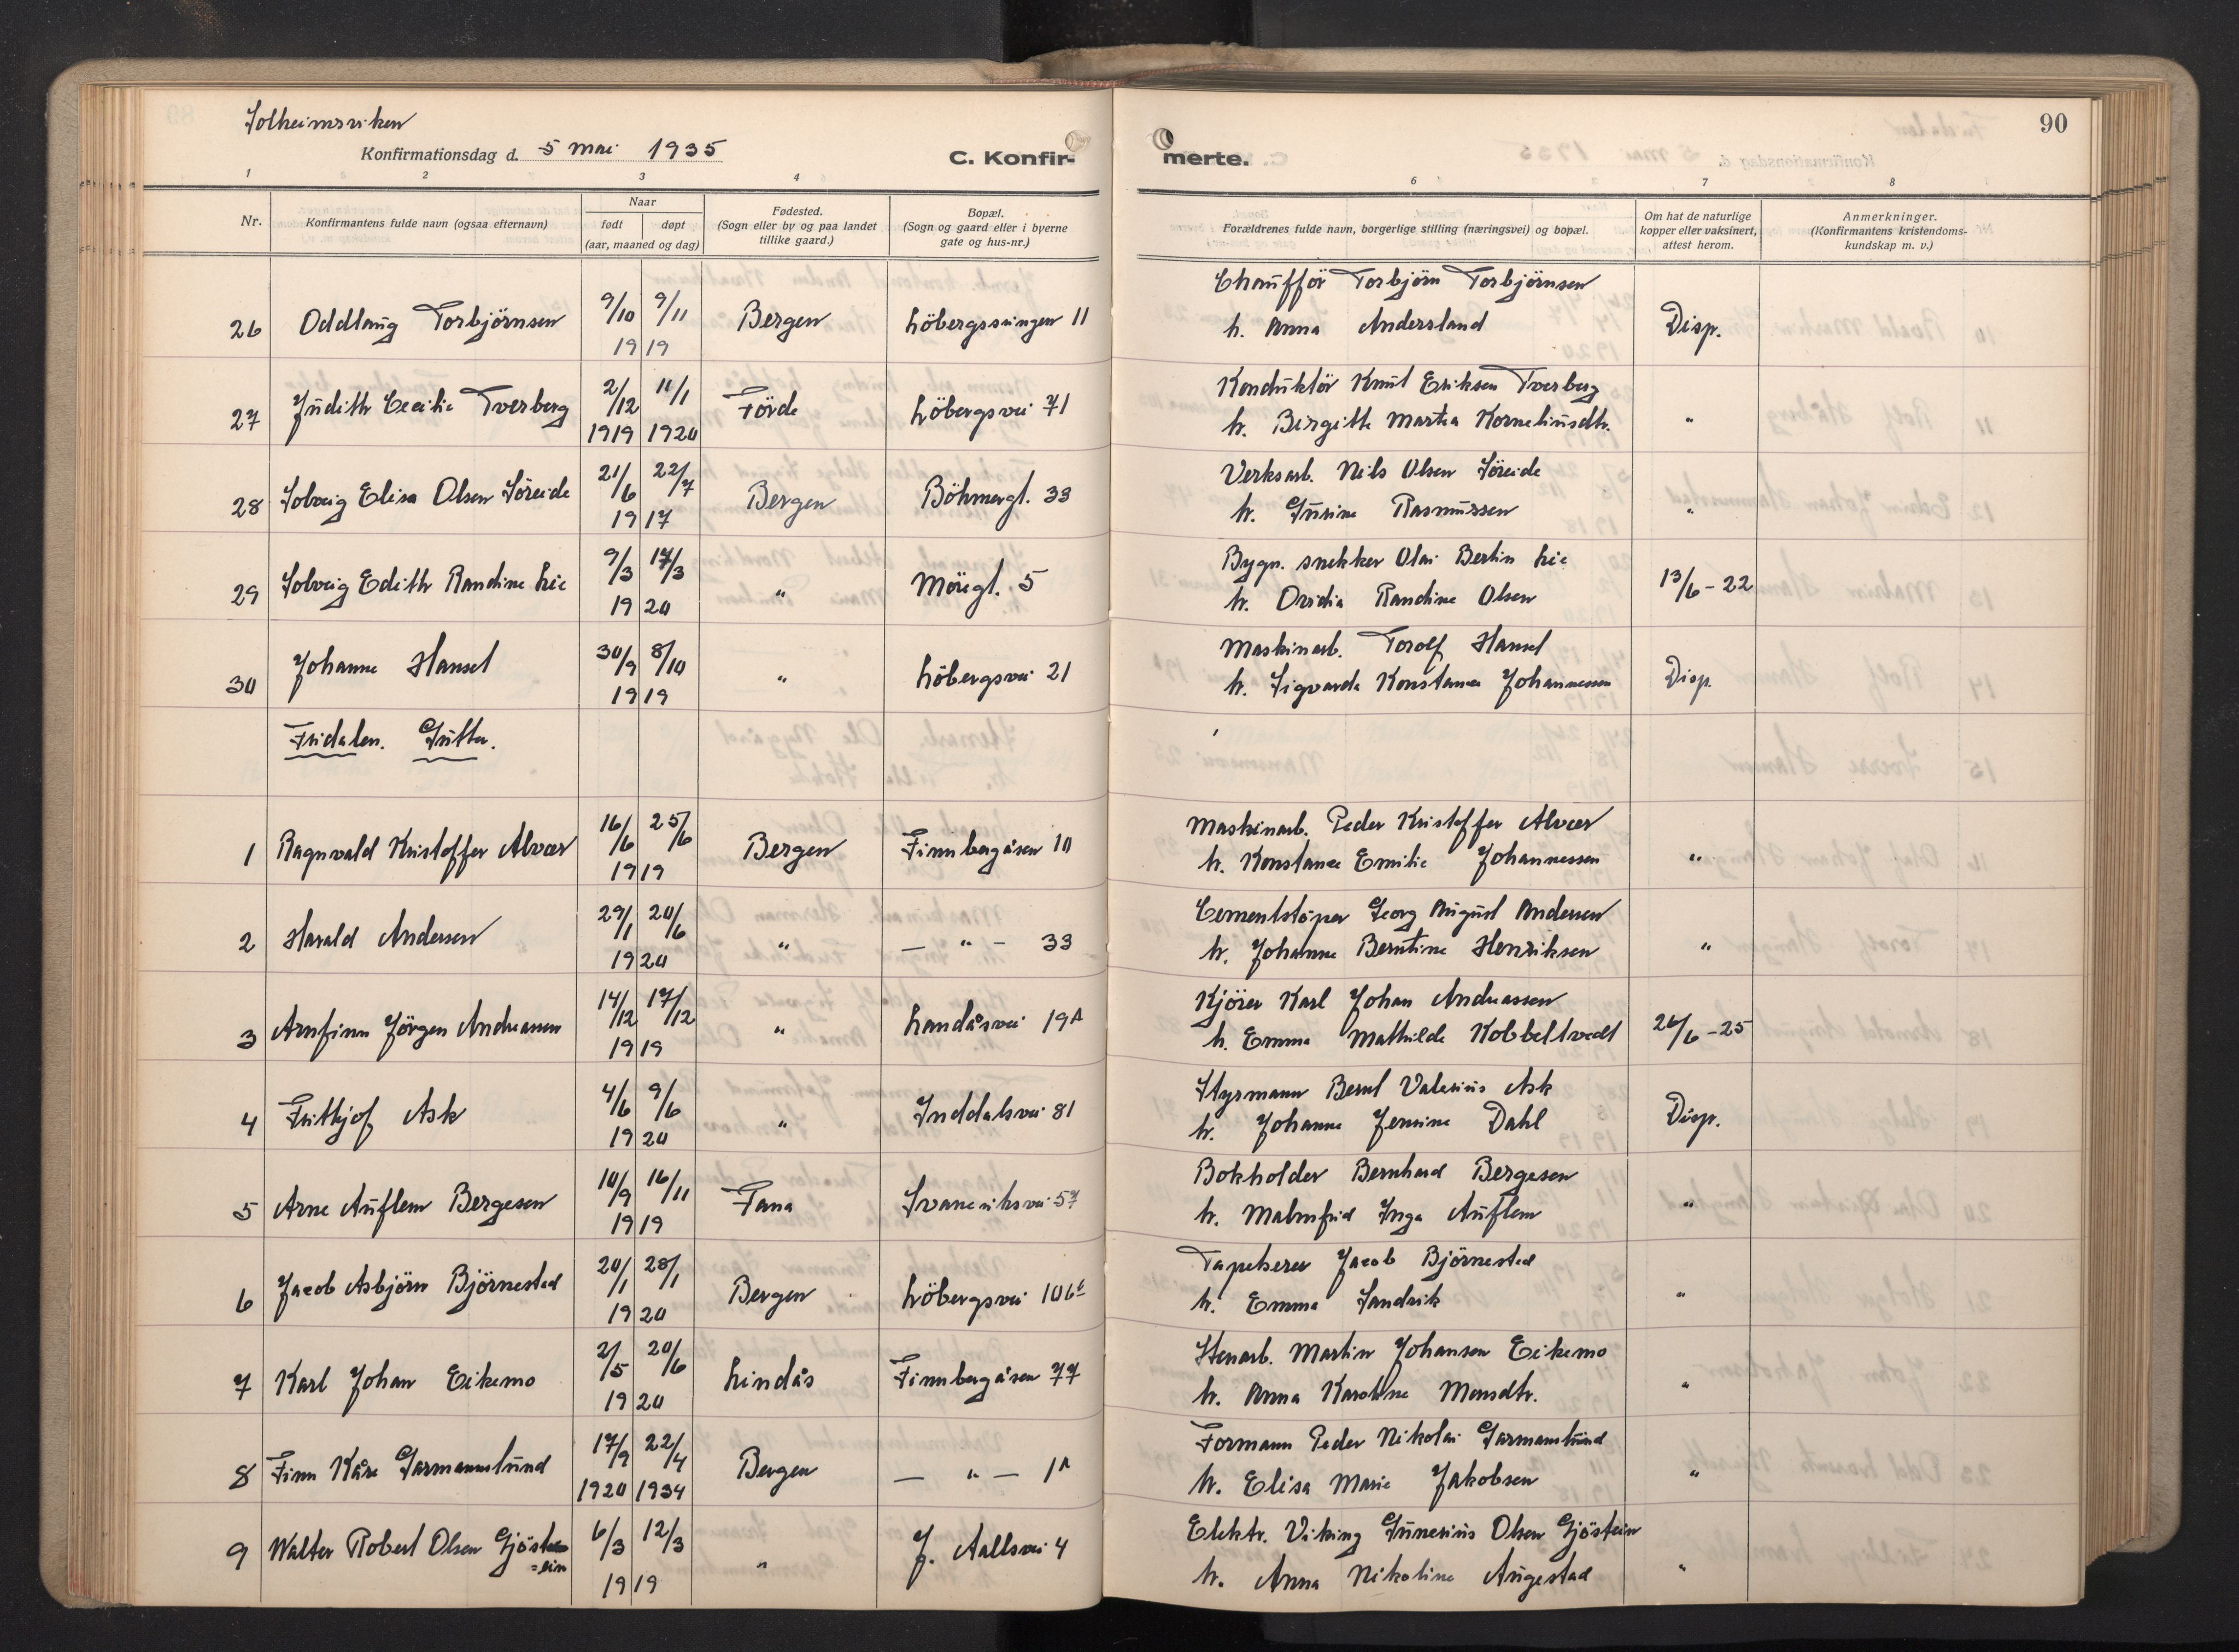 Solheimsviken
Konfirmationsdag d. 5 mai 1935
C. Konfir-
merte.
90
1 2 3 4 6 7 8
Nr.
Konfirmantens fulde navn (ogsaa efternavn)
Naar
født døpt
(aar, maaned og dag)
Fødested.
(Sogn eller by og paa landet
tillike gaard.)
Bopæl.
(Sogn og gaard eller i byerne
gate og hus-nr.)
Forældrenes fulde navn, borgerlige stilling (næringsvei) og bopæl.
Om hat de naturlige
kopper eller vaksinert,
attest herom.
Anmerkninger.
(Konfirmantens kristendoms-
kundskap m. v.)
Chaufför Torbjörn Torbjörnsen
26 Oddlaug Torbjörnsen 9/10 9/11 Bergen Löbergssvingen 11 h. Anna Andersland Disp.
1919
Konduktör Knut Eriksen Tverberg
27 Judith Cecilie Tverberg 2/12 11/1 Förde Löbergsvei 71 h. Birgitte Martea Korneliusdtr. "
1919 1920
Verksarb. Nils Olsen Söreide
28 Solveig Elisa Olsen Söreide 21/6 22/7 Bergen Böhmergt. 33 h. Gurine Rasmussen "
1917
Bygn. snekker Olai Bertin Lie
29 Solveig Edith Randine Lie 9/3 17/3 " Möregt. 5 h. Ovidia Randine Olsen 13/6-22
1920
Maskinarb. Torolf Hansel
30 Johanne Hansel 30/9 8/10 " Löbergsvei 21 h. Sigvarda Konstance Johannessen Disp.
1919
Fridalen. Gutter.
Maskinarb. Peder Kristoffer Alvær
1 Ragnvald Kristoffer Alvær 16/6 25/6 Bergen Finnbergåsen 10 h. Konstance Emilie Johannessen "
1919
Cementstöper Georg August Andersen
2 Harald Andersen 29/1 20/6 " — " — 33 h. Johanne Berntine Henriksen "
1920
Kjörer Karl Johan Andreassen
3 Arnfinn Jörgen Andreassen 14/12 17/12 " Landåsvei 19A h. Emma Mathilde Kobbeltvedt 26/6-25
1919
Styrmann Bernt Valerius Ask
4 Frithjof Ask 4/6 9/6 " Inddalsvei 81 h. Johanne Jensine Dahl Disp.
1920
Bokholder Bernhard Bergesen
5 Arne Auflem Bergesen 10/9 16/11 Fana Svaneviksvei 57 h. Malmfrid Inga Auflem "
1919
Tapetserer Jacob Björnestad
6 Jacob Asbjörn Björnestad 20/1 28/1 Bergen Löbergsvei 106 h. Emma Sandvik "
1920
Stenarb. Martin Johansen Eikemo
7 Karl Johan Eikemo 2/5 20/6 Lindås Finnbergåsen 77 h. Anna Karoline Monsdtr. "
1920
Formann Peder Nikolai Garmannslund
8 Finn Kåre Garmannslund 17/9 22/4 Bergen — " — 1A h. Elisa Marie Jakobsen "
1920 1934
Elektr. Viking Gunerius Olsen Gjöstein
9 Walter Robert Olsen Gjöst 6/3 12/3 " J. Aallsvei 4 h. Anna Nikoline Augestad "
=ein
1919